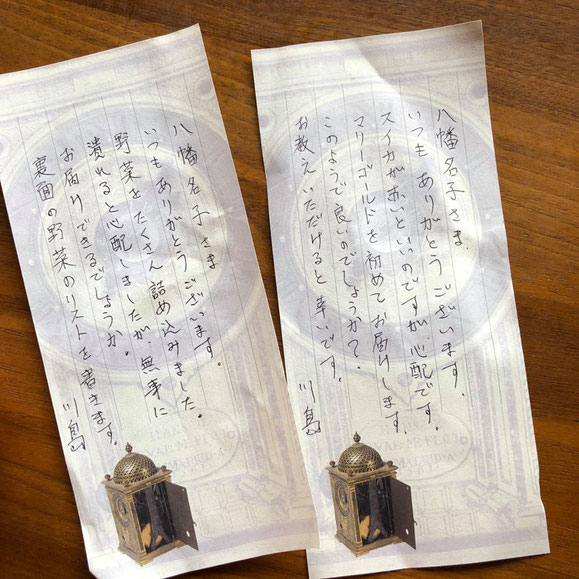 八幡名子さま.
いつもありがとうございます.
スイカが赤いといいのですが心配です.
マリーゴールドを初めてお届けします.
このようで良いのでしょうか?
お教えいただけると幸いです.
川島
八幡名子さま
いつもありがとうございます.
野菜をたくさん詰め込みました.
潰れると心配しましたが、無事に
お届けできるでしょうか.
裏面の野菜のリストを書きます.
川島